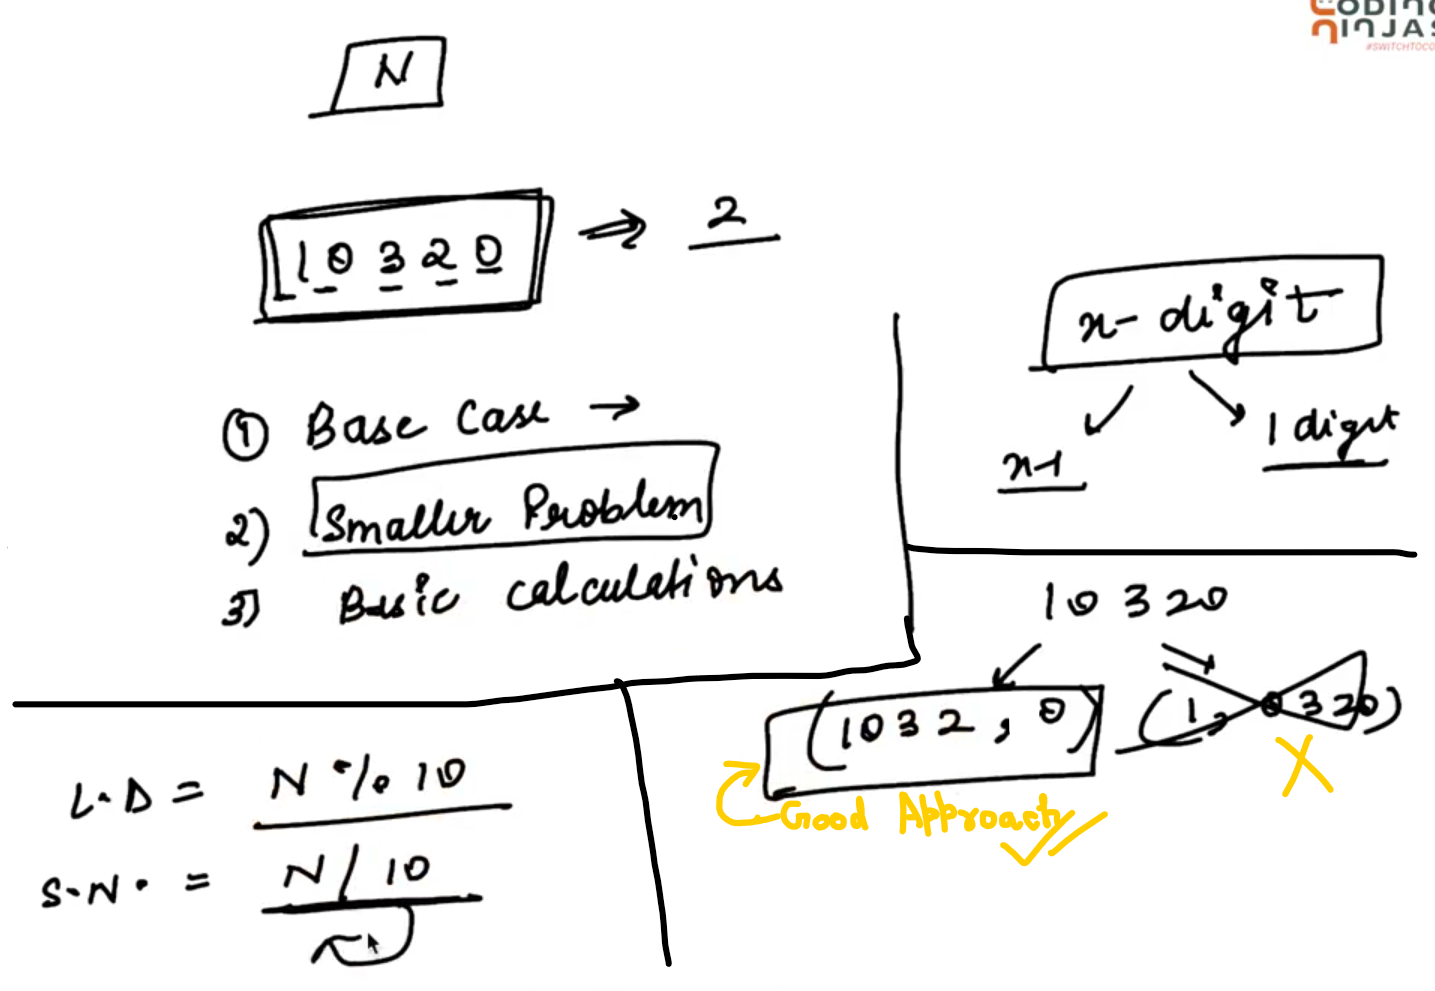 CODING
NINJAS
#SWITCHTOCO
N
10320 ⇒ 2
① Base Case →
2) Smaller Problem
3) Basic calculations
n-digit
n-1 1 digit
10320
(1032, 0) (1, 0320)
X
Good Approach
L.D = N % 10
S.N. = N / 10